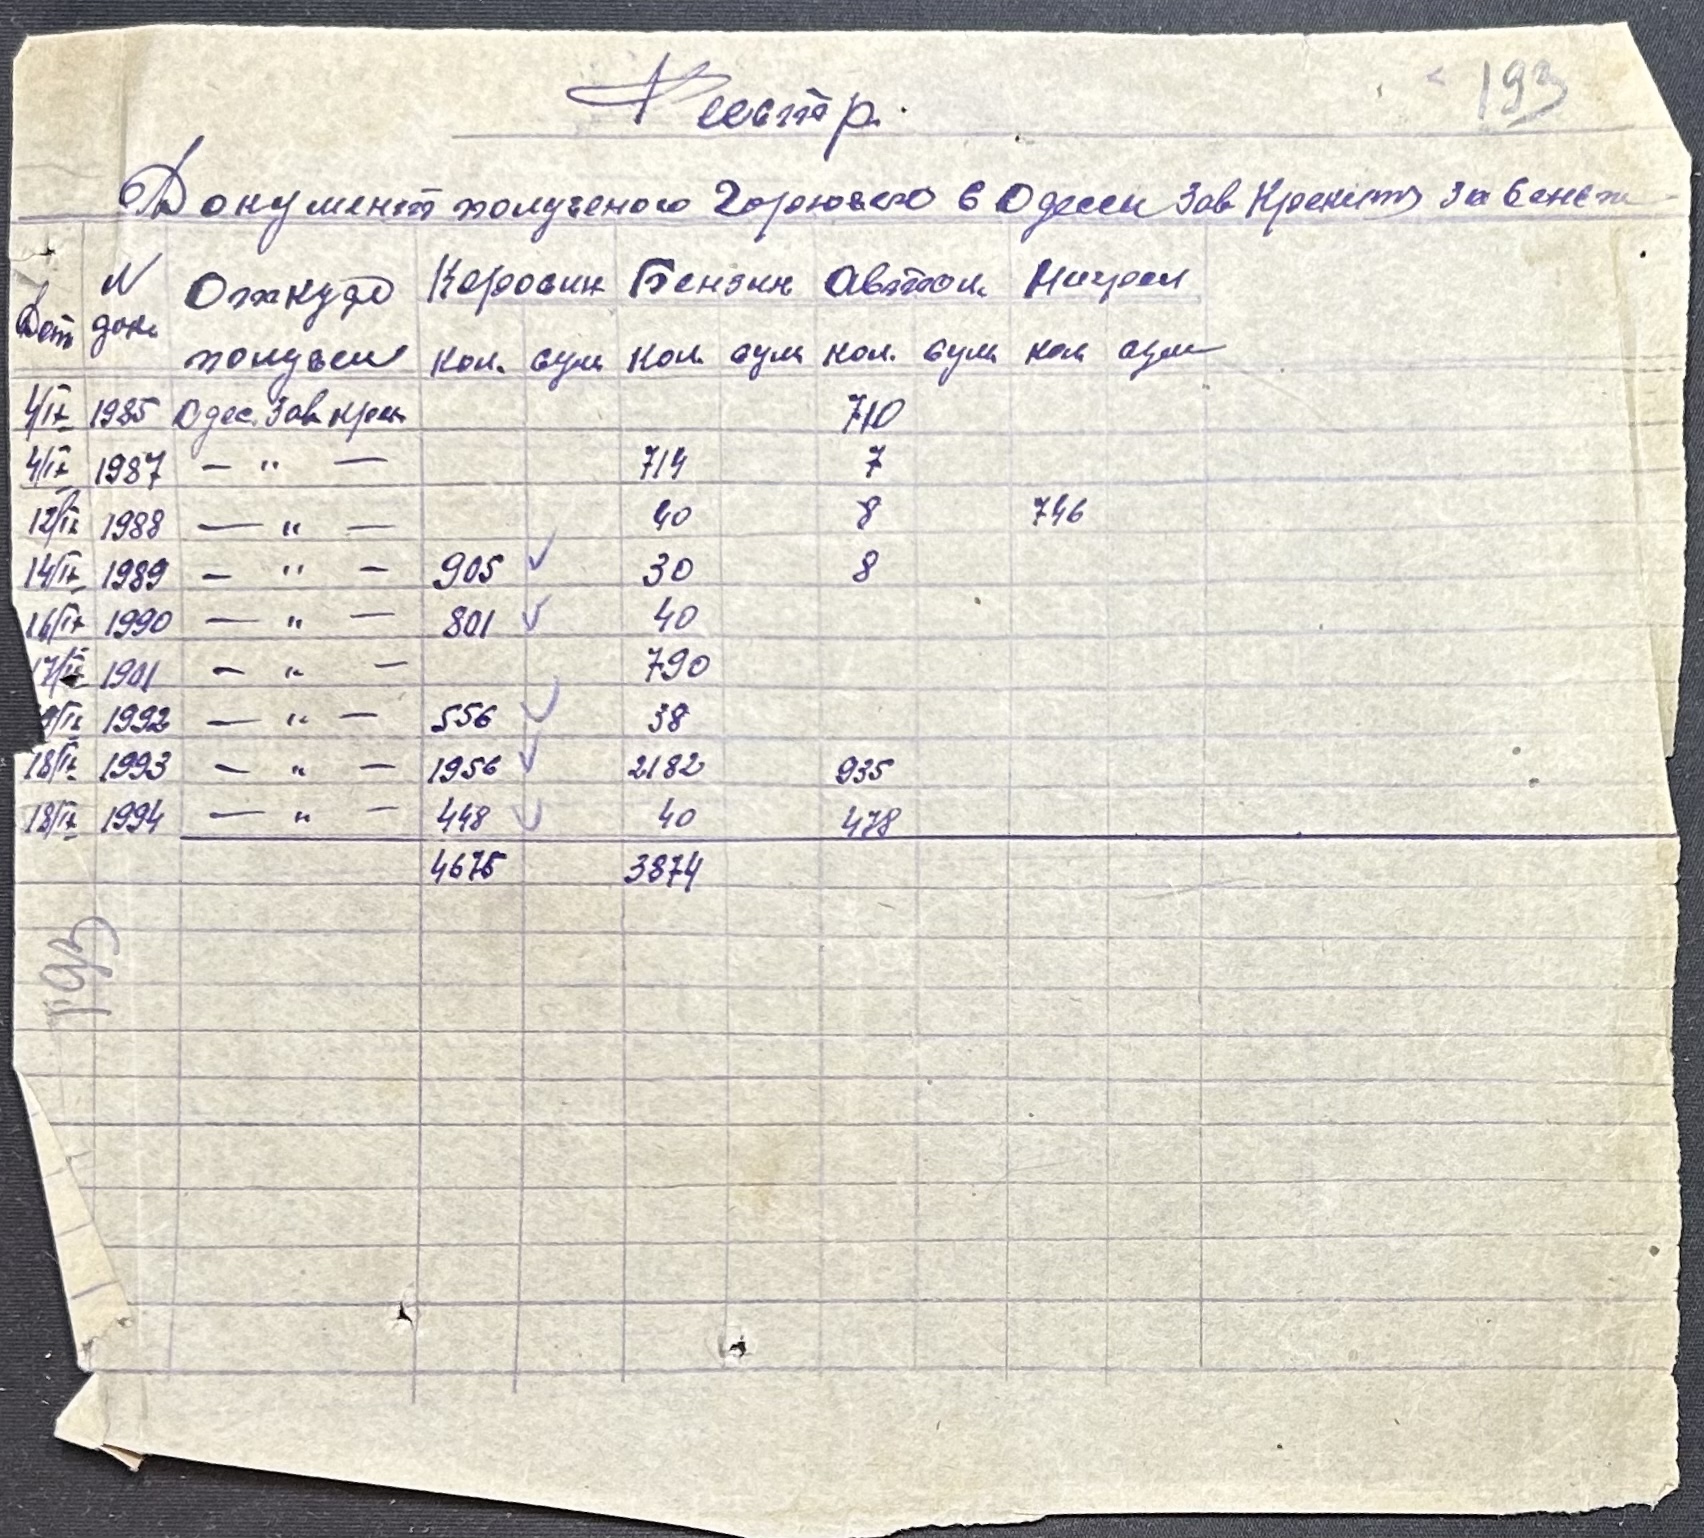 193
Реестр.
Документ полученого Горючего в Одессы Зав Крекинг за
Дат N док. Откудо получен Керосин кол. сум Бензин кол. сум Автол. кол. сум Нигрол кол сум
4/IX 1985 Одес. Зав крек 710
4/IX 1987 — " — 714 7
12/IX 1988 — " — 40 8 746
14/IX 1989 — " — 905 ✓ 30 8
16/IX 1990 — " — 801 ✓ 40
17/IX 1901 — " — 790
/IX 1992 — " — 556 ✓ 38
18/IX 1993 — " — 1956 ✓ 2182 935
18/IX 1994 — " — 448 ✓ 40 478
4675 3874
193